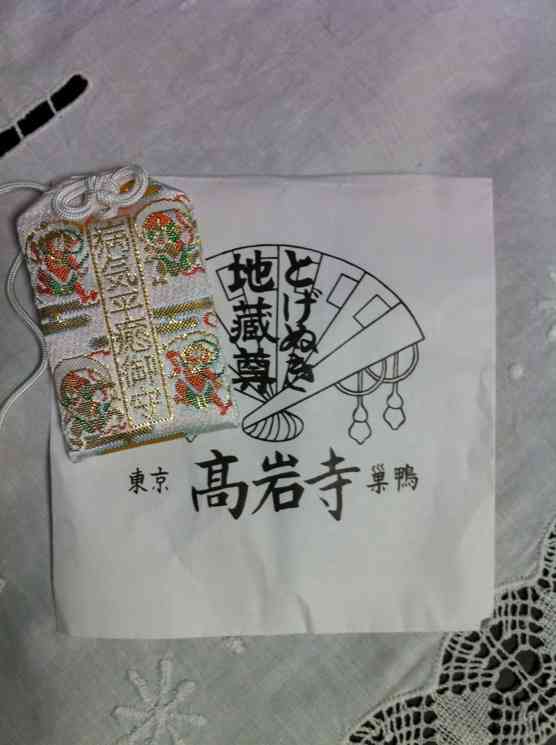 病気平癒御守
とげぬき
地蔵尊
東京 高岩寺 巣鴨